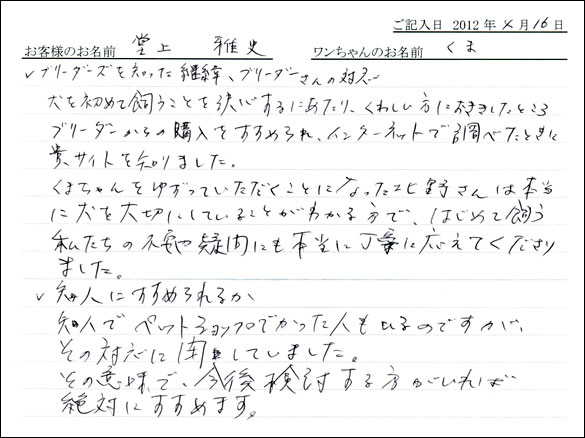 ご記入日 2012年4月16日
お客様のお名前 堂上 雅史 ワンちゃんのお名前 くま
✓ブリーダーズを知った経緯、ブリーダーさんの対応
犬を初めて飼うことを決心するにあたり、くわしい方におききしたところ
ブリーダーからの購入をすすめられ、インターネットで調べたときに
貴サイトを知りました。
くまちゃんをゆずっていただくことになった北野さんは本当
に犬を大切にしていることがわかる方で、はじめて飼う
私たちの不安や疑問にも本当に丁寧に応えてくださり
ました。
✓知人にすすめられるか
知人でペットショップでかった人もいるのですが、
その対応に閉口していました。
その意味で、今後検討する方がいれば
絶対にすすめます。